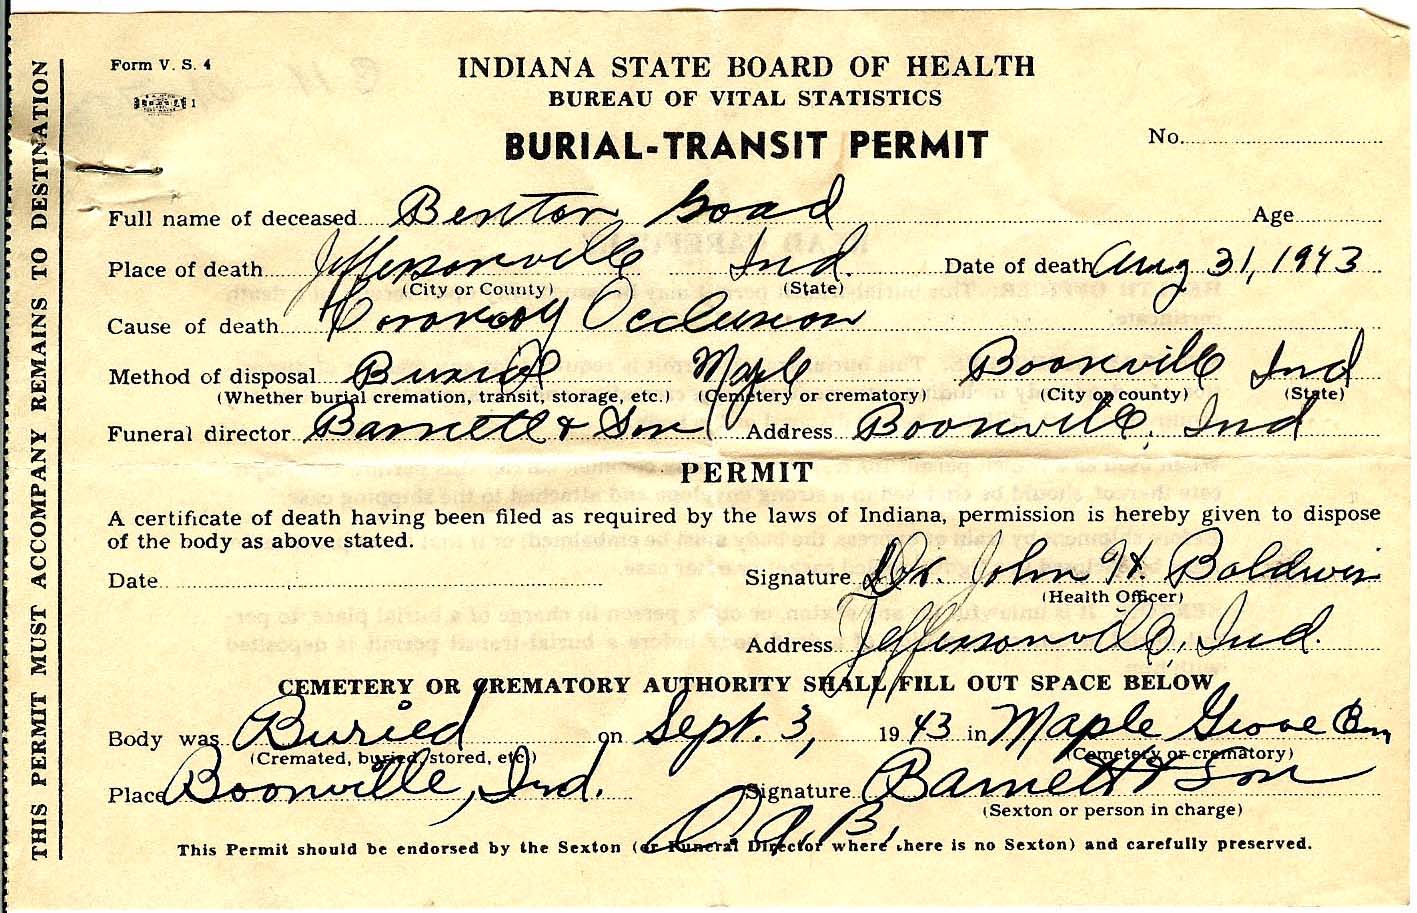 Form V. S. 4
INDIANA STATE BOARD OF HEALTH
BUREAU OF VITAL STATISTICS
BURIAL-TRANSIT PERMIT
No.
Full name of deceased Benton Goad Age
Place of death Jeffersonville Ind. Date of death Aug 31, 1943
(City or County) (State)
Cause of death Coronary Occlusion
Method of disposal Burial Maple Boonville Ind
(Whether burial cremation, transit, storage, etc.) (Cemetery or crematory) (City or county) (State)
Funeral director Barnett & Son Address Boonville, Ind
PERMIT
A certificate of death having been filed as required by the laws of Indiana, permission is hereby given to dispose
of the body as above stated.
Date Signature Dr. John H. Baldwin
(Health Officer)
Address Jeffersonville, Ind.
CEMETERY OR CREMATORY AUTHORITY SHALL FILL OUT SPACE BELOW
Body was Buried on Sept. 3, 1943 in Maple Grove Cem
(Cremated, buried, stored, etc.) (Cemetery or crematory)
Place Boonville, Ind. Signature Barnett & Son
(Sexton or person in charge)
This Permit should be endorsed by the Sexton (or Funeral Director where there is no Sexton) and carefully preserved.
THIS PERMIT MUST ACCOMPANY REMAINS TO DESTINATION